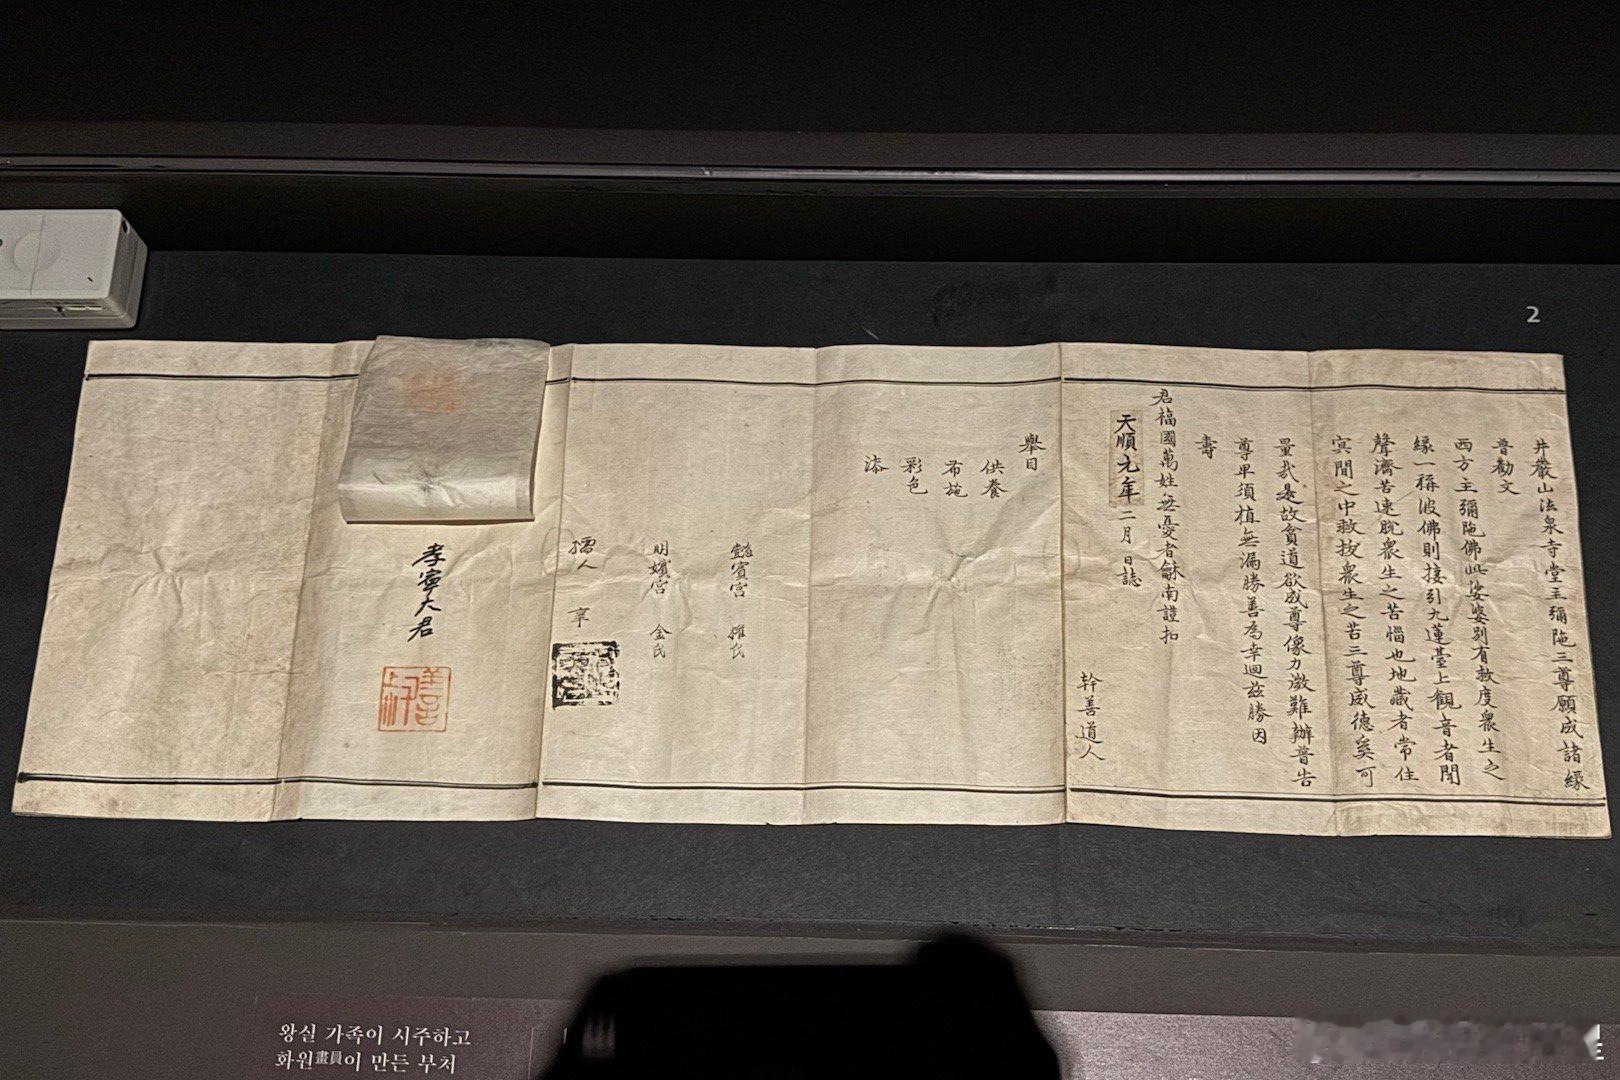 井巖山法泉寺堂主彌陁三尊願成諸緣
普勸文
西方主彌陁佛此娑婆別有救度衆生之
緣一稱彼佛則接引九蓮臺上觀音者聞
聲濟苦速脫衆生之苦惱也地藏者常住
冥間之中救拔衆生之苦三尊威德奚可
量哉是故貧道欲成尊像力微難辦普告
尊卑須植無漏勝善爲幸迴玆勝因
壽
君福國萬姓無憂者龢南謹扣
天順元年二月 日誌
幹善道人
擧目
供養
布施
彩色
漆
懿嬪宮 權氏
明嬪宮 金氏
孺人 李
孝寧大君
2
왕실 가족이 시주하고
화원畫員이 만든 부처